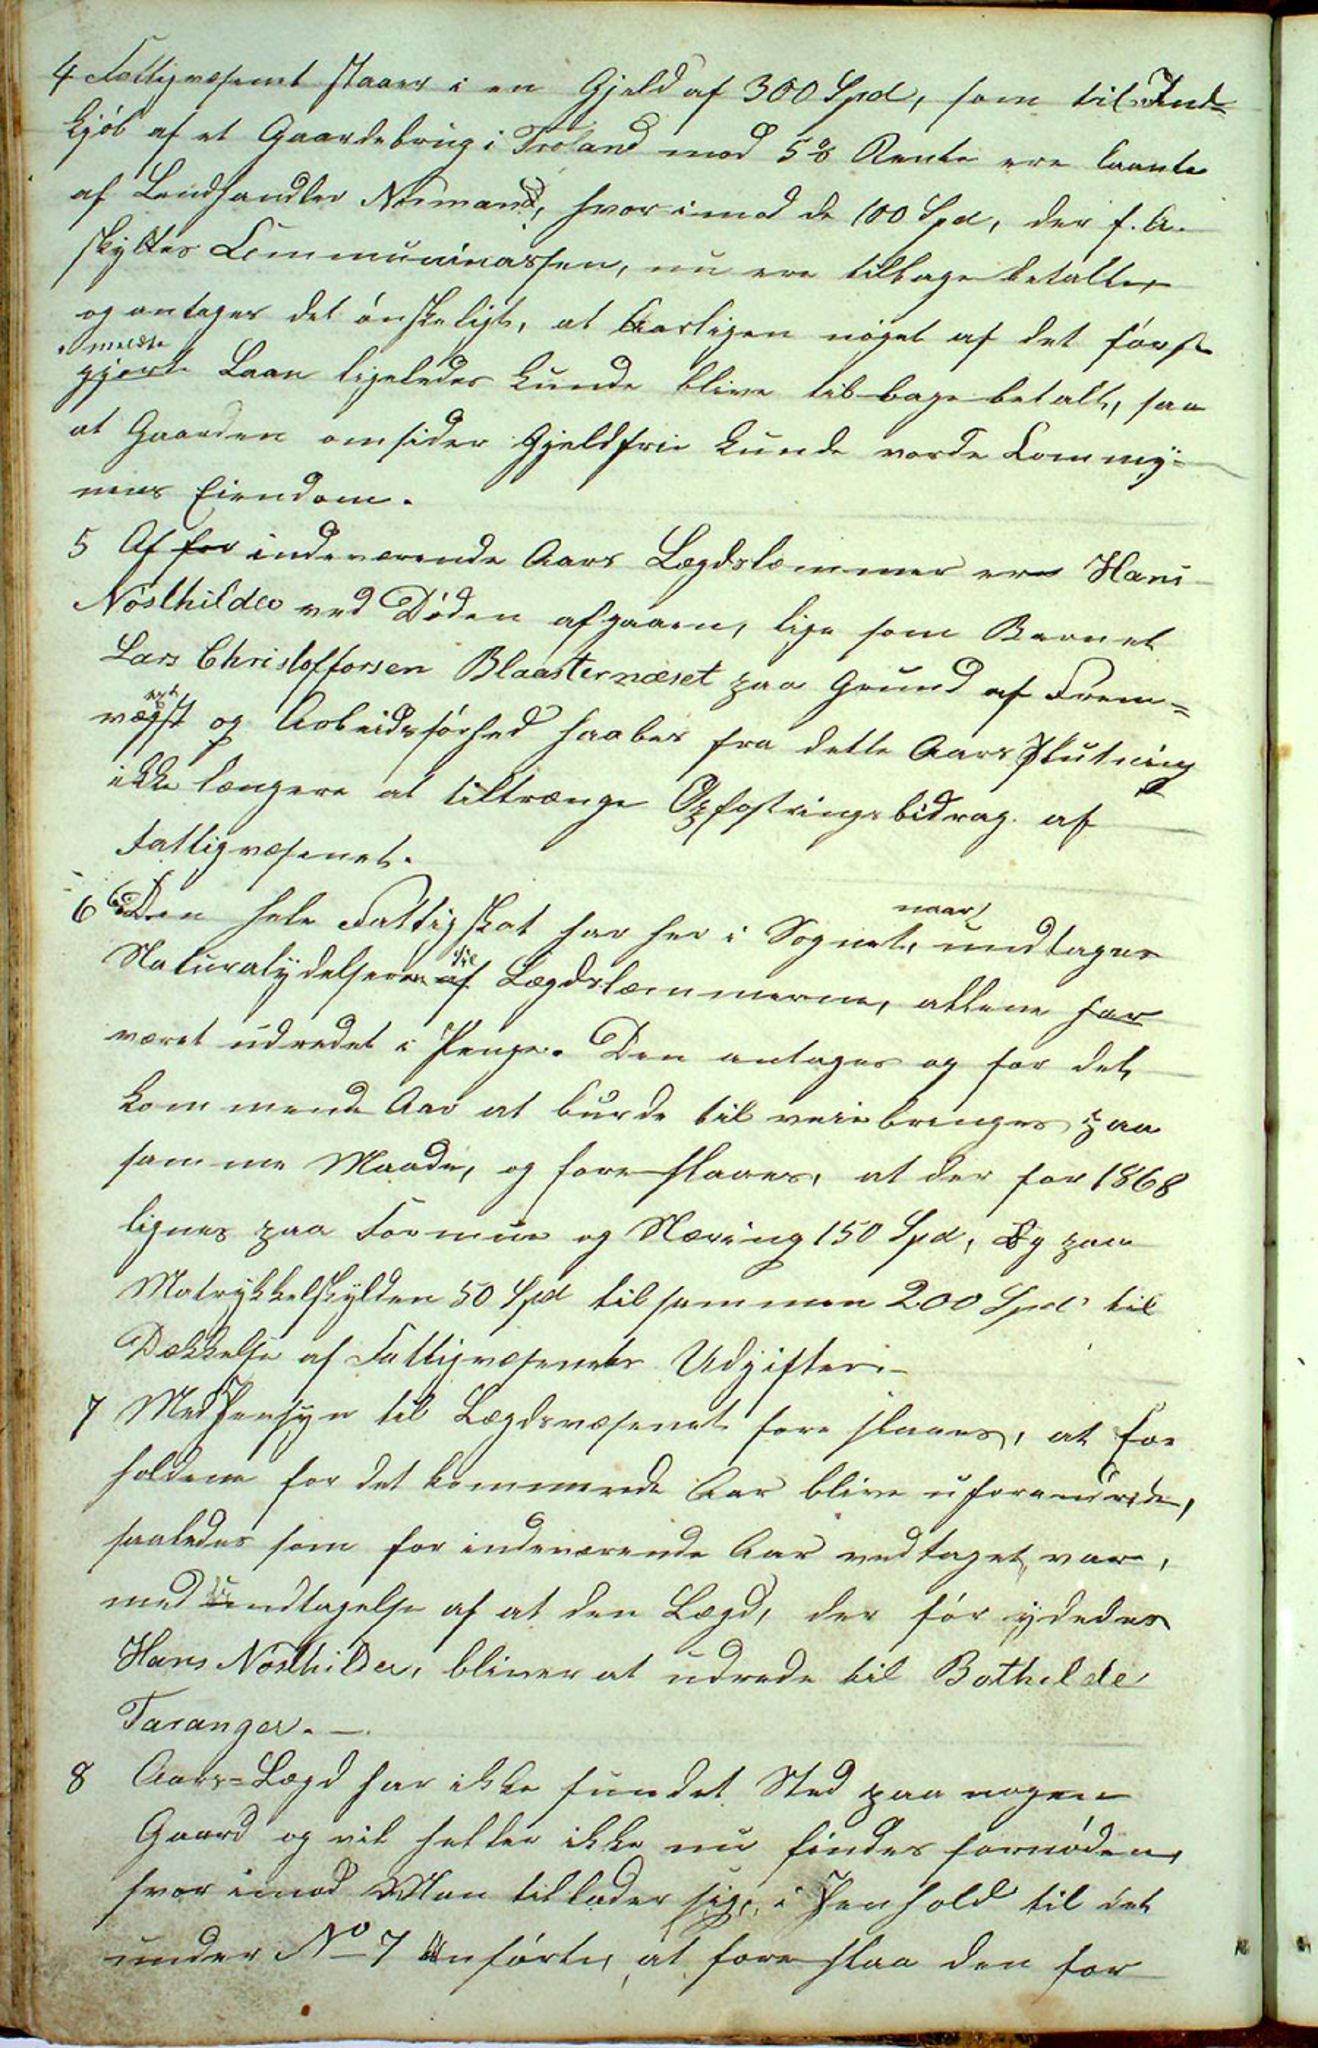 4 Fattigvæsenet staaer i en Gjeld af 300 Spd, som til Ind=
kjöb af et Gaardebrug i Troland mod 5% Rente ere laante
af Landhandler Normand, hvorimod de 100 Spd, der f. A.
skyltes Communicassen, nu ere tilbagebetalte,
og antages det önskeligt, at Aarligen noget af det först
meldte
gjorte Laan ligeledes kunde blive tilbagebetalt, saa
at Gaarden omsider Gjeldfrie kunde vorde Commü-
nens Eiendom.
5 Af for indeværende Aars Lægdslemmer ere Hans
Nöslhildes ved Döden afgaaen, lige som Barnet
Lars Christoffersen Blaasternæset paa Grund af Frem=
væxt og Arbeidsförhed haabes fra dette Aars Slutning
ikke længere at tiltrænge Opfostringsbidrag af
Fattigvæsenet.
6 Den hele Fattigskat har her i Sognet, naar undtages
til
Naturalydelserne af Lægdslemmerne, allene har
været udredet i Penge. Den antages og for det
kommende Aar at burde tilveiebringes paa
samme Maade, og foreslaaes, at der for 1868
lignes paa Formue og Næring 150 Spd, og paa
Matrykkelskylden 50 Spd tilsammen 200 Spd til
Dækkelse af Fattigvæsenets Udgifter.
7 Med Hensyn til Lægdsvæsenet foreslaaes, at For
holdene for det kommende Aar blive uforandrede,
saaledes som for indeværende Aar vedtaget var,
med Undtagelse af at den Lægd, der för ydedes
Hans Nöslhilder, bliver at udrede til Bothilde
Taranger. —
8 Aars=Lægd har ikke fundet Sted paa nogen
Gaard og vil heller ikke nu findes fornöden,
hvorimod Man tillader sig, i Henhold til det
under No 7 Anförte, at foreslaa den for